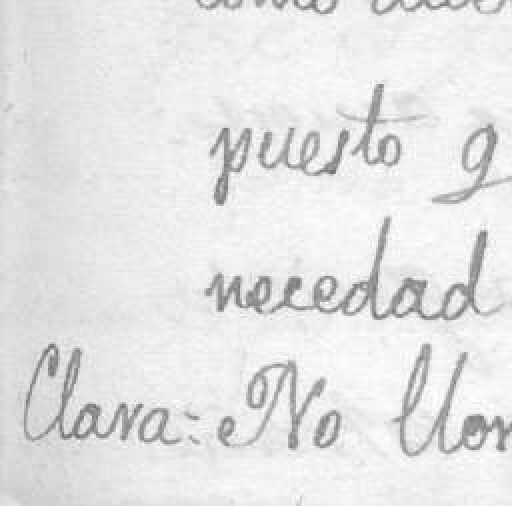 como
puesto q
necedad
Clara:- No llor